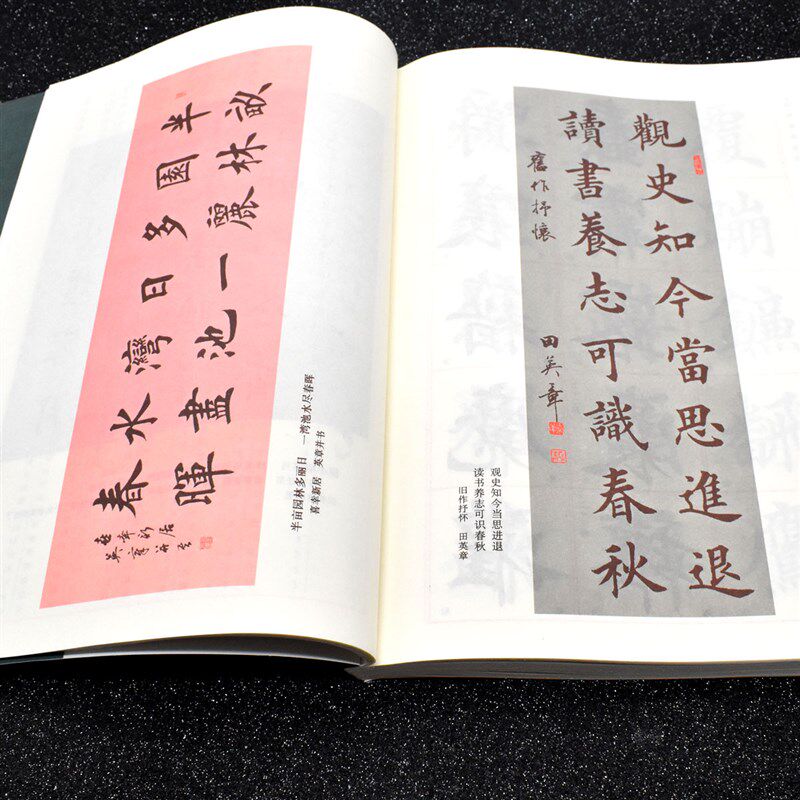 半畝
園林
多麗
日一
灣池
水盡
春暉
喜幸新居
英章並書
半亩园林多丽日 一湾池水尽春晖
喜幸新居 英章并书
觀史知今當思進退
讀書養志可識春秋
舊作抒懷 田英章
观史知今当思进退
读书养志可识春秋
旧作抒怀 田英章